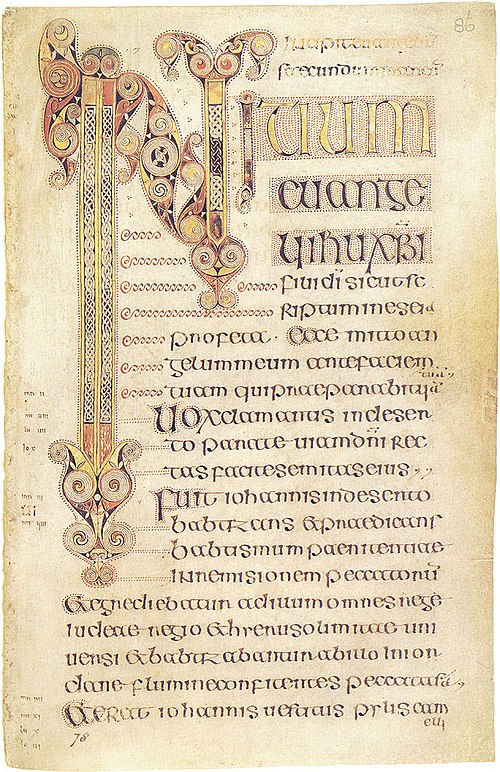 86
INITIUM
euange
lii ihu xpi
fili di sicut sc
riptum in eseia
profeta · Ecce mitto an
gelum meum ante faciem
tuam qui praeparabit uiā
Uox clamantis in deser
to parate uiam dn̄i rec
tas facite semitas eius
Fuit iohannis in deserto
babtizans & praedicans
babtismum paenitentiae
in remisionem peccatorū
& egrediebatur ad illum omnes rege
iudeae regio & hierusolimitae uni
uersi & babtizabantur ab illo in ior
dane flumine confitentes peccata sua
& erat iohannis uestitus pylis cam
elli
78